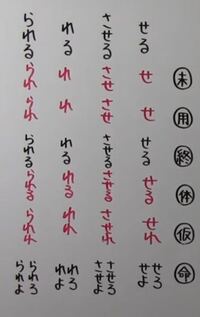 未 用 終 体 仮 命
せる せ せ せる せる せれ せろ せよ
させる させ させ させる させる させれ させろ させよ
れる れ れ れる れる れれ れろ れよ
られる られ られ られる られる られれ られろ られよ